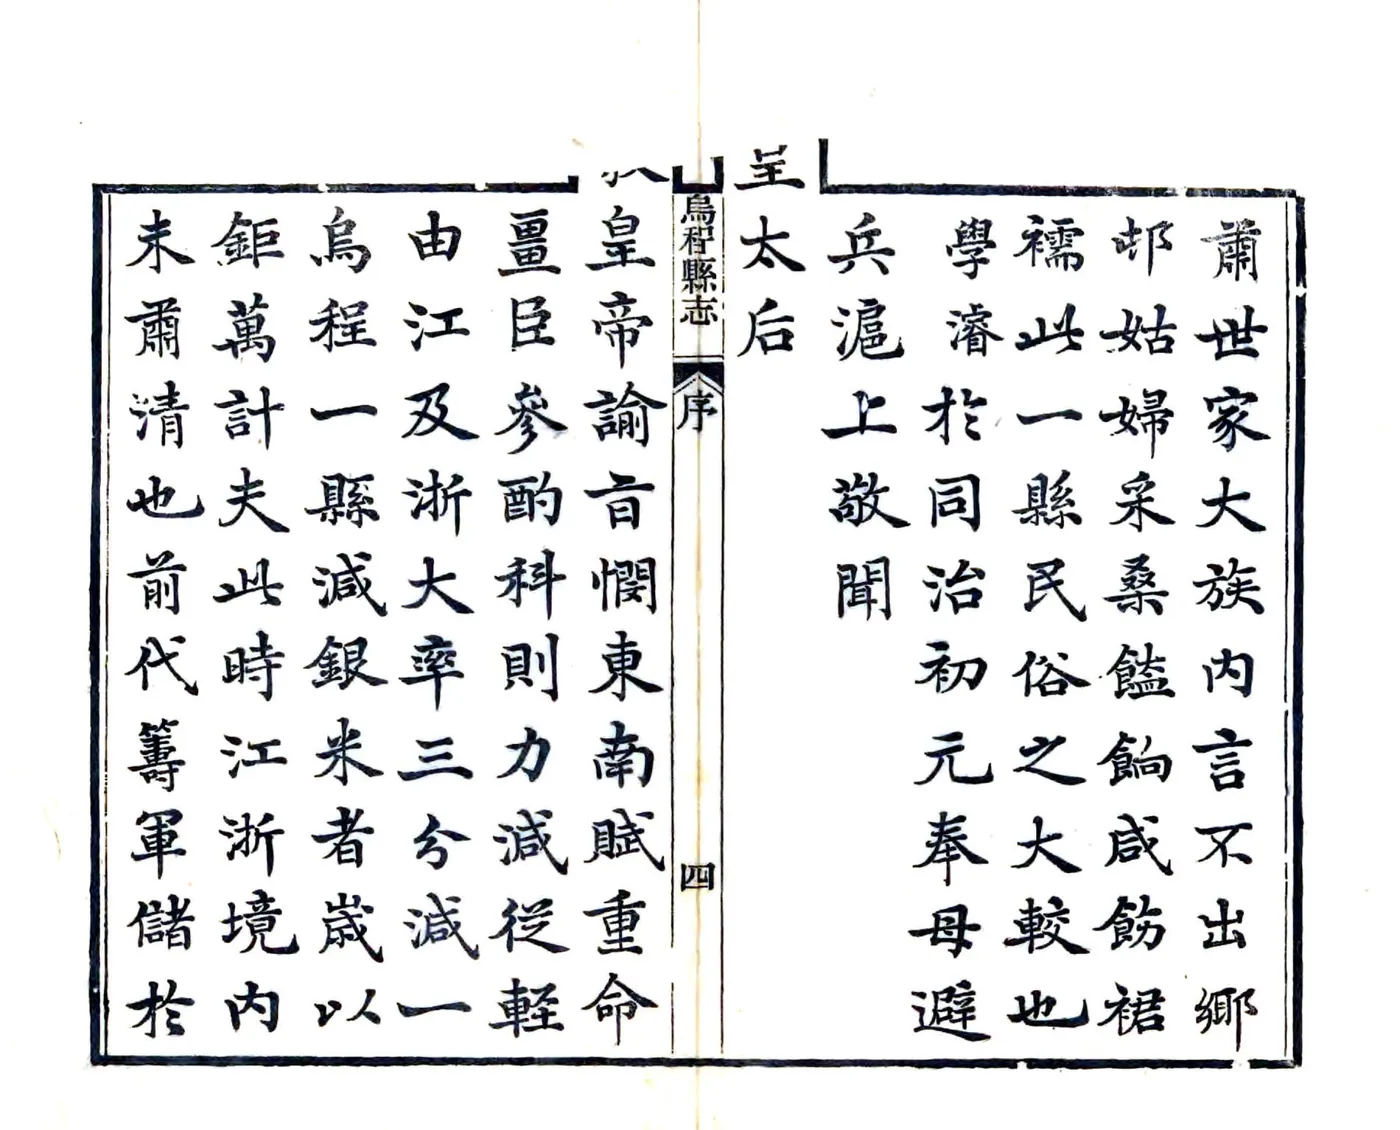 肅世家大族內言不出鄉
邨姑婦采桑饁餉咸飭裙
襦此一縣民俗之大較也
學濬於同治初元奉母避
兵滬上敬聞
皇太后
烏程縣志 序 四
皇帝諭旨憫東南賦重命
畺臣參酌科則力減從輕
由江及浙大率三分減一
烏程一縣減銀米者歲以
鉅萬計夫此時江浙境內
未肅清也前代籌軍儲於